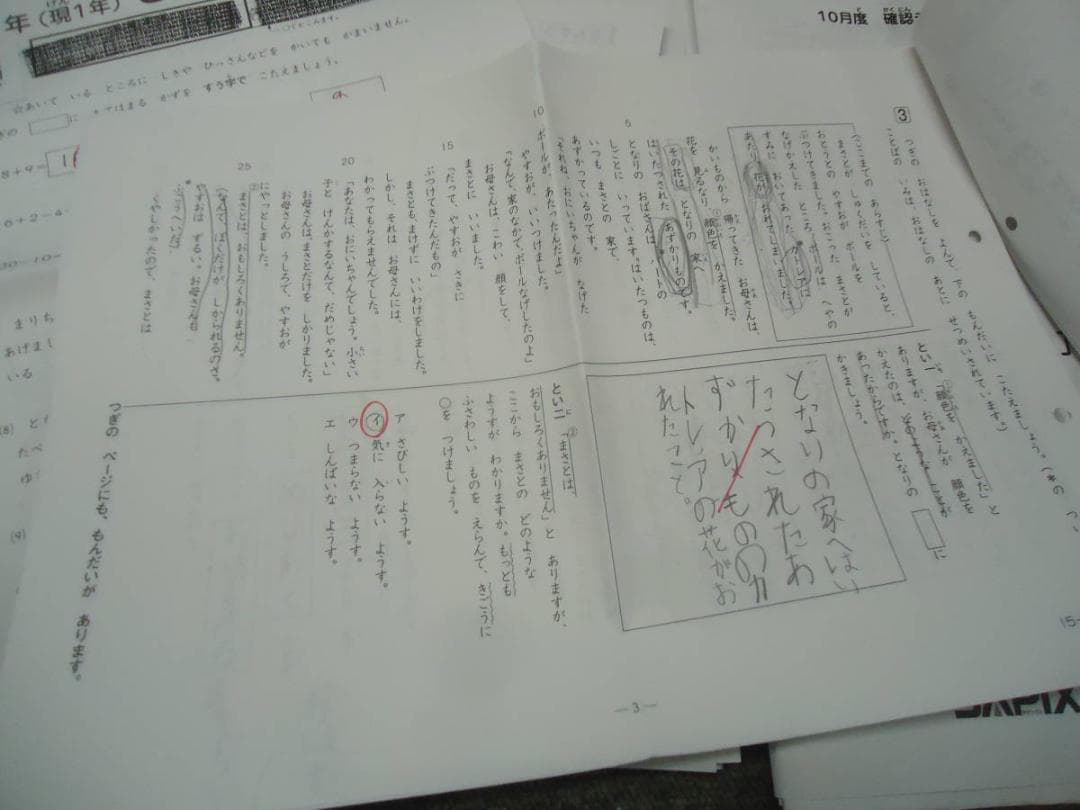 年(現1年)
10月度 確認
☆あいて いる ところに しきや ひっさんなどを かいても かまいません。
に あてはまる かずを すう字で こたえましょう。
8+9=
6+2-4
30-10-
まりち
あげまし
いる
3
つぎの おはなしを よんで、下の もんだいに こたえましょう。(*の つ
ことばの いみは、おはなしの あとに せつめいされています。)
〈ここまでの あらすじ〉
まさとが しゅくだいを していると、
おとうとの やすおが ボールを
ぶつけてきました。おこった まさとが
なげかえした ところ、ボールは へやの
すみに おいてあった カトレアに
あたり、花が おれてしまいました。
かいものから 帰ってきた お母さんは、
花を 見るなり、顔色を かえました。
その花は となりの 家へ
はいたつされた あずかりものです。
となりの おばさんは、パートの
しごとに いっています。はいたつものは、
いつも まさとの 家で、
あずかっているのです。
「それね、おにいちゃんが なげた
ボールが、あたったんだよ」
やすおが、いいつけました。
「なんで、家のなかで、ボールなげしたのよ」
お母さんは、こわい 顔をして、
まさとに いいました。
「だって、やすおが さきに
ぶつけてきたんだもの」
まさとも、まけずに いいわけをしました。
しかし、それは お母さんには、
わかってもらえませんでした。
「あなたは、おにいちゃんでしょう。小さい
子と けんかするなんて、だめじゃない」
お母さんは、まさとだけを しかりました。
お母さんの うしろで、やすおが
にやっとしました。
②まさとは、おもしろくありません。
(なんで、ぼくだけが しかられるのさ。
やすおは ずるい。お母さんも
くやしかったので、まさとは
5
10
15
20
25
とい一 ①「顔色を かえました」と
ありますが、お母さんが 顔色を
かえたのは、
あったからですか。となりの □ に
かきましょう。
となりの家へはい
たつされたあ
ずかりもののカ
トレアの花がお
れたこと。
とい二 ②「まさとは、
おもしろくありません」と ありますが、
ここから まさとの どのような
ようすが わかりますか。もっとも
ふさわしい ものを えらんで、きごうに
○を つけましょう。
ア さびしい ようす。
イ 気に 入らない ようす。
ウ つまらない ようす。
エ しんぱいな ようす。
つぎの ページにも、もんだいが あります。
—3—
SAPIX